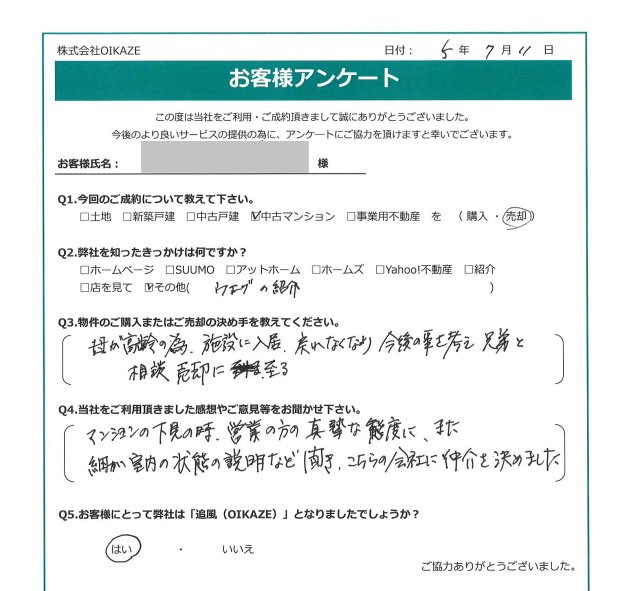 株式会社OIKAZE 日付： 5 年 7 月 11 日
お客様アンケート
この度は当社をご利用・ご成約頂きまして誠にありがとうございました。
今後のより良いサービスの提供の為に、アンケートにご協力を頂けますと幸いでございます。
お客様氏名： 様
Q1.今回のご成約について教えて下さい。
□土地 □新築戸建 □中古戸建 ☑中古マンション □事業用不動産 を （ 購入 ・ 売却 ）
Q2.弊社を知ったきっかけは何ですか？
□ホームページ □SUUMO □アットホーム □ホームズ □Yahoo!不動産 □紹介
□店を見て ☑その他( ウェブの紹介 )
Q3.物件のご購入またはご売却の決め手を教えてください。
母が高齢の為、施設に入居、戻れなくなり 今後の事を考え 兄弟と
相談 売却に 至る
Q4.当社をご利用頂きました感想やご意見等をお聞かせ下さい。
マンションの下見の時、営業の方の真摯な態度に、また
細かい室内の状態の説明など頂き、こちらの会社に仲介を決めました
Q5.お客様にとって弊社は「追風（OIKAZE）」となりましたでしょうか？
はい ・ いいえ
ご協力ありがとうございました。